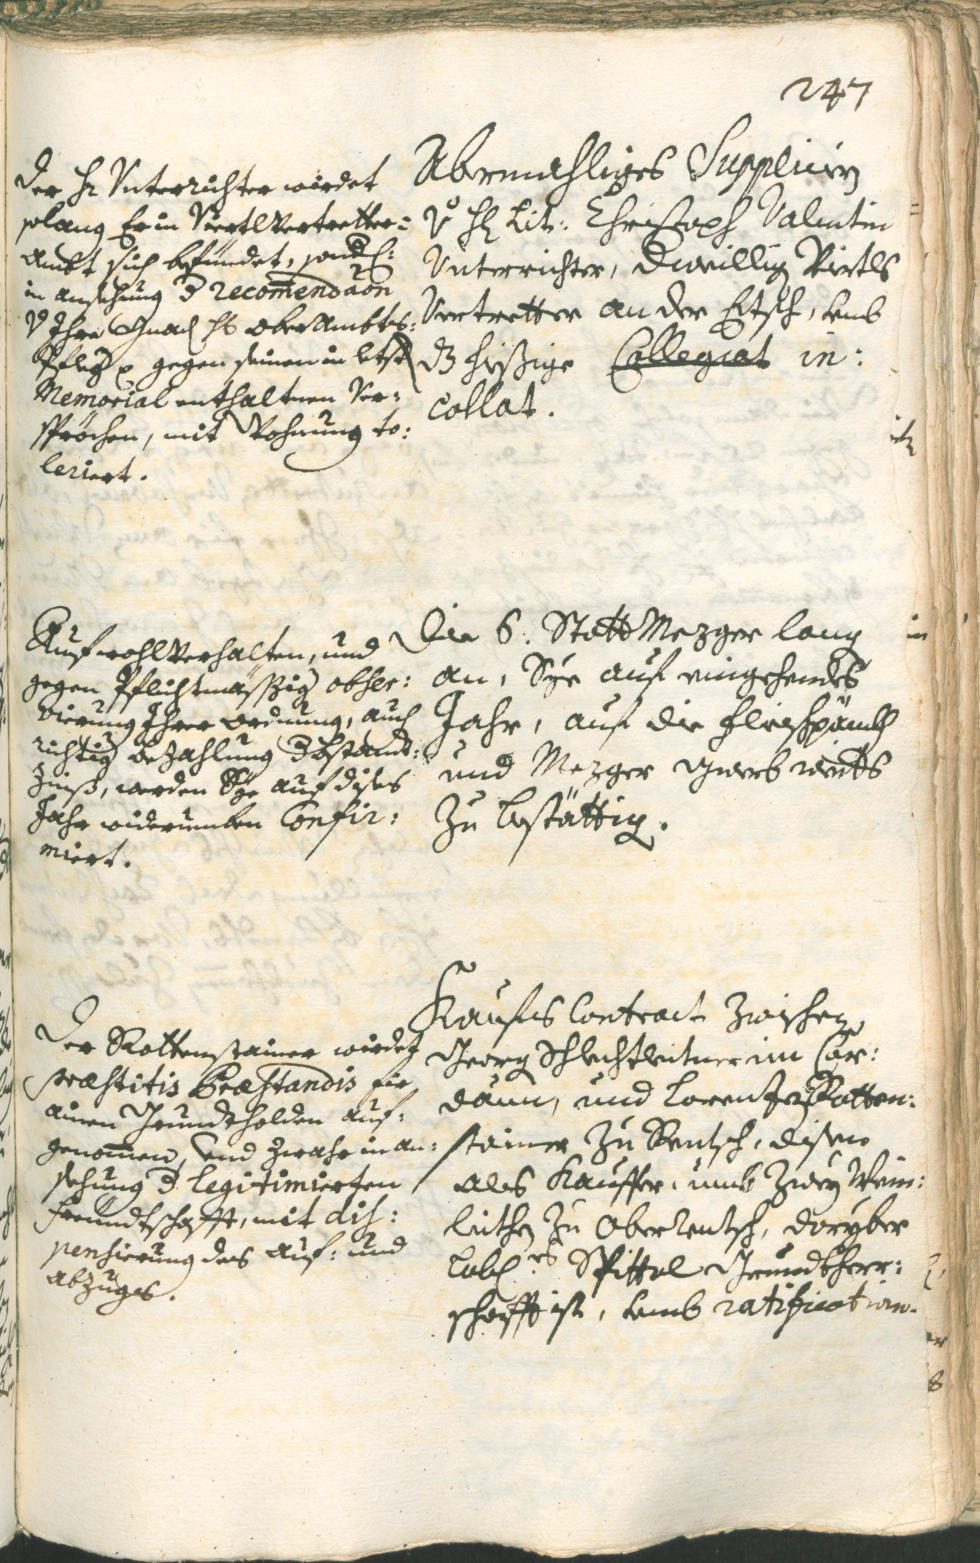 247
Der H: Vnterrichter wirdet
solang Er in Viertl Vertretter=
Ambt sich befündet, sond[erlich]
in ansehung d[er] recomendaōn
Ihro Gnad H: OberAmbts:
Pfleg p gegen seinen in
Memorial enthaltnen Ver=
sprechen, mit Wohnung to:
leriert.
Abermahliges Supplicirn
H: Lit: Christoph Valentin
Vnterrichter, Viertls
Vertretter an der Etsch, umb
dz hießige Collegiat in:
collat.
Auf wohlverhalten, und
gegen Pflichtmässig obser:
vierung Ihrer ordnung, auch
richtig bezahlung d bstandt:
Zinß, werden Sye auf dises
Jahr widerumben Confir:
miert.
Die 6. Statt Mezger lang
an, Sye auf eingehendes
Jahr, auf die Fleischpänckh
und Mezger
zu bestättig.
Der Rottenstainer wirdet
præstitis Præstandis für
ainen Grundtholden auf:
genomen, und zwahr in an:
sehung d legitimierten
Freundtschafft, mit dis:
pensierung des Auf: und
Abzugs.
Kaufs Contract zwischen
Georg Schlechtleitner im Car:
daun, und Lorenz Rotten:
stainer zu Rentsch, disen
als Kauffer, umb zwey Wein:
leithen zu Oberrentsch, darüber
Lobl: es Spittal Grundtherr:
schafft ist, umb ratification.